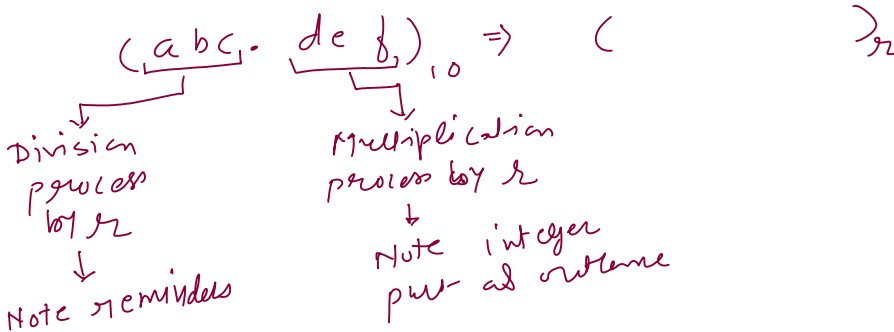 (abc. def)10 ⇒ ( )r
Division
process
by r
Note reminders
Multiplication
process by r
Note integer
part as outcome